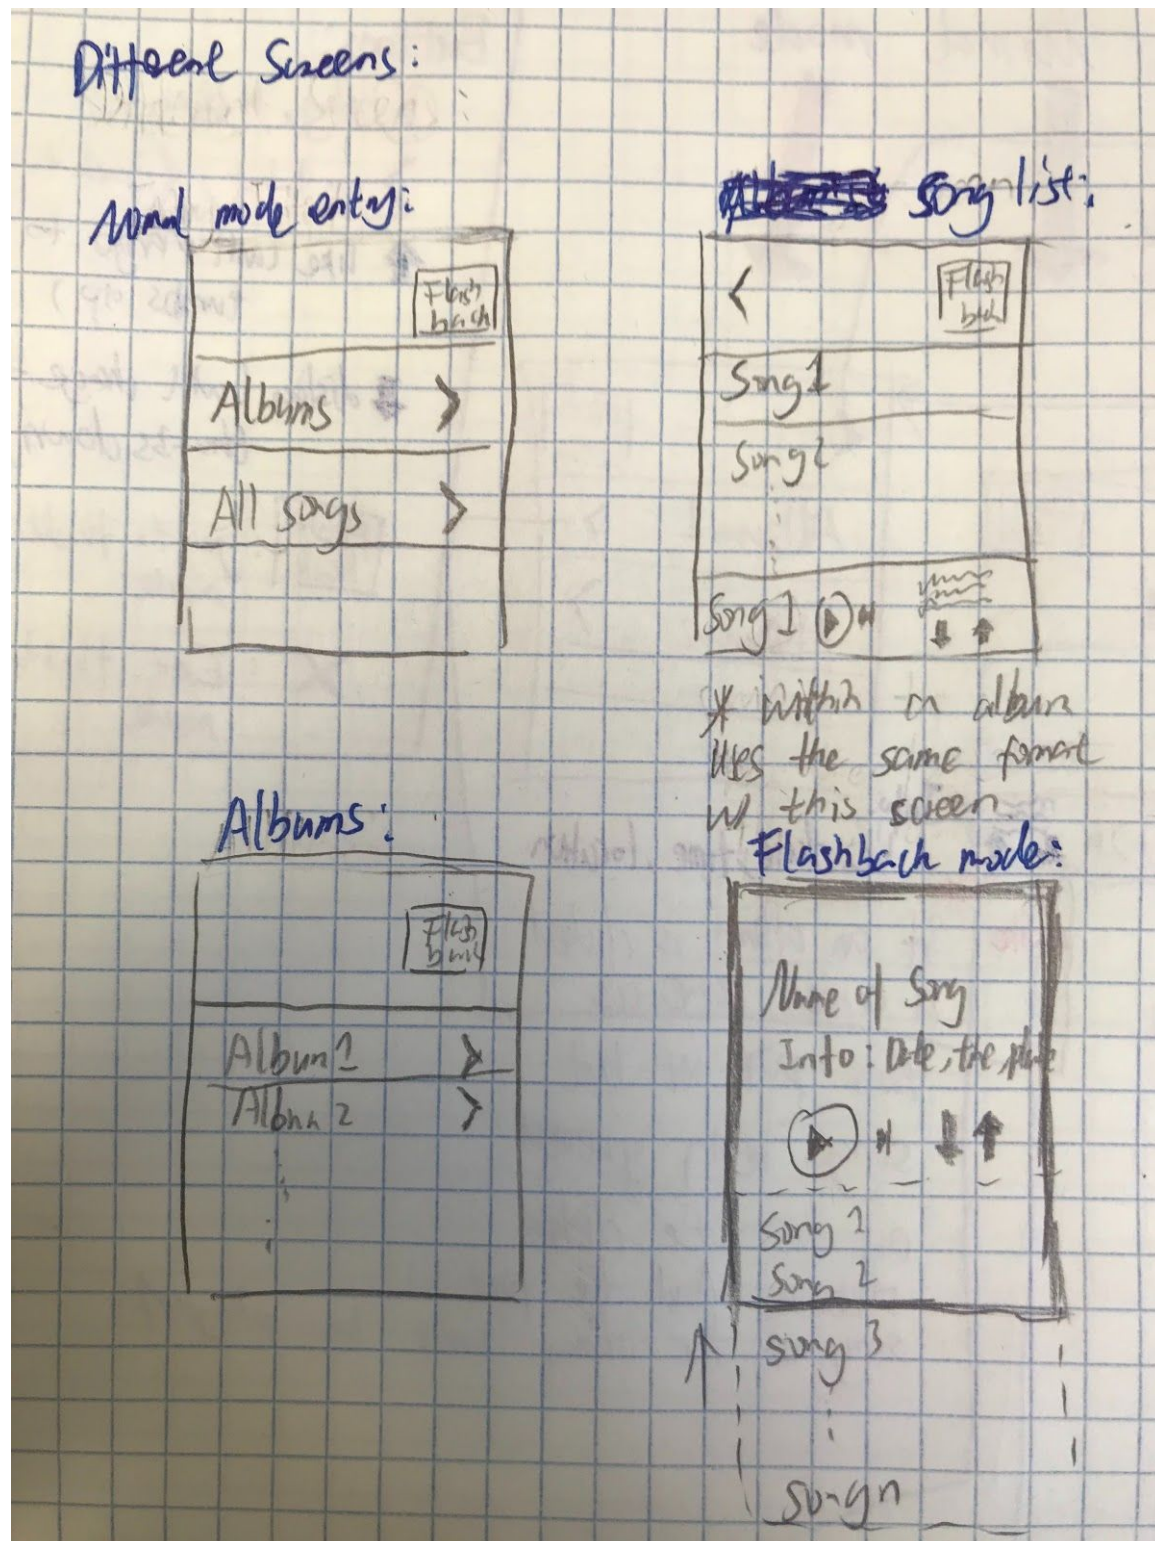 Different Screens:
Normal mode entry:
Flash
back
Albums >
All songs >
song list:
<
Flash
back
Song 1
Song 2
Song 1
* within an album
uses the same format
w/ this screen
Albums:
Flash
back
Album 1 >
Album 2 >
Flashback mode:
Name of Song
Info: Date, time, place
Song 1
Song 2
song 3
song n